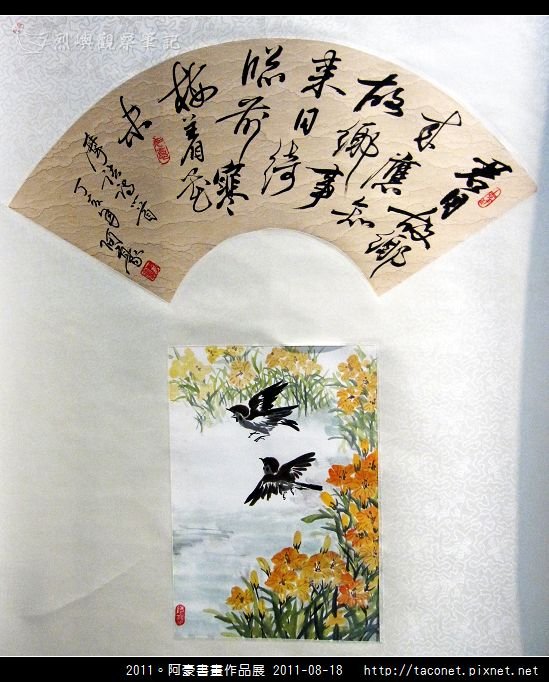 烈嶼觀察筆記
君自故鄉
來應知
故鄉事
來日綺
牕前寒
梅着花
未
2011。阿豪書畫作品展 2011-08-18 http://taconet.pixnet.net